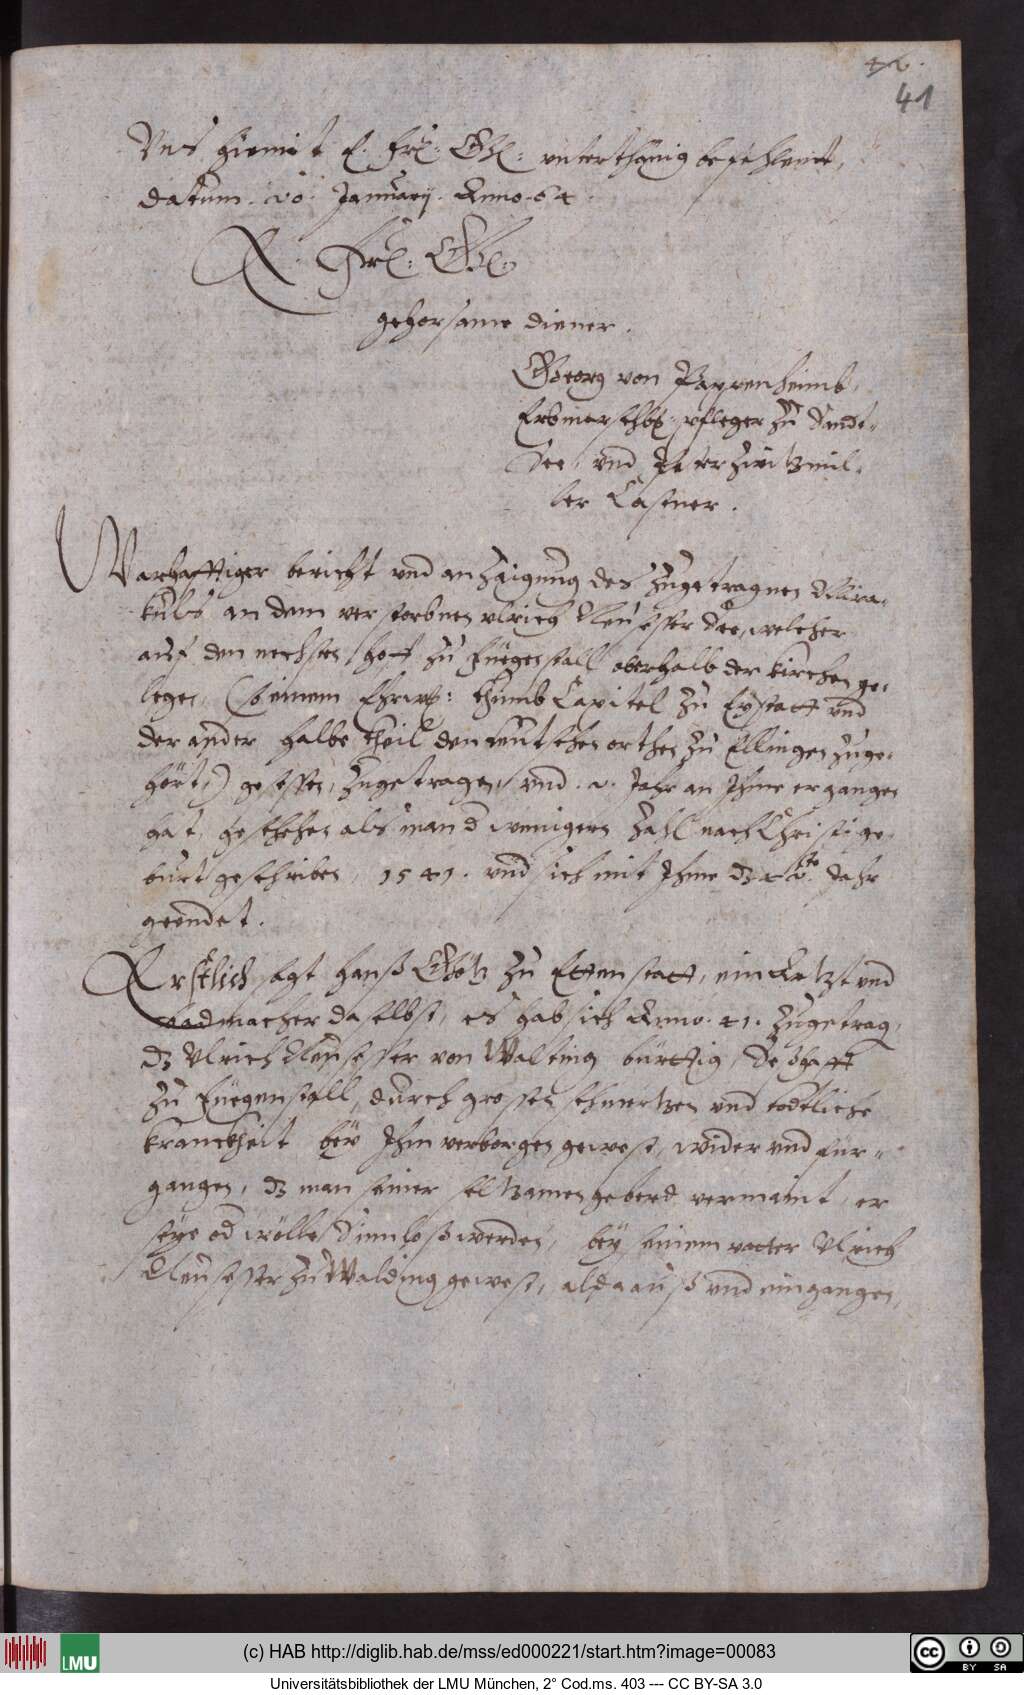 41
Vns hiemit E. Frl: Gh: vnterthänig befehlent,
datum. 20. Januarij. Anno. 64.
E. Frl: Gh:
gehorsame diener.
Georg von Pappenheimb,
Erbmarschkh: pfleger zu Sandt-
See, vnd Peter
ler Castner.
Warhafftiger bericht vnd anzaigung des zugetragnen Mira-
kuls an dem verstorbnen vlrich See, welcher
auf den nechsten hoff zu Füegenstall oberhalb der kirchen ge-
legen, (so einem Ehrwr: thumb Capitel zu Eystatt vnd
der ander halbe theil den teutschen orthen zu Ellingen zuge-
hört,) gesessen, zugetragen, vnd . 2. Jahr an Ihme ergangen
hat, geschehen als man d wenigern Zahl nach Christi ge-
burt geschriben, 1541. vnd sich mit Ihme dz 42te. Jahr
geendet.
Erstlich sagt Hanß Götz zu Ettenstatt, ein Artzt vnd
Badmacher daselbst, es hab sich Anno. 41. zugetrag,
dz Vlrich von Walting bürttig, Seßhafft
zu Füegenstall, durch grossen schmertzen vnd todtliche
kranckheit bey Ihm verborgen gewest, wider vnd für-
gangen, dz man seiner seltzamen geberd vermaint, er
seye od wölle Sinnloß werden, bey seinem vatter Vlrich
zu Walding gewest, alda auß vnd eingangen,
(c) HAB http://diglib.hab.de/mss/ed000221/start.htm?image=00083
LMU
CC BY SA
Universitätsbibliothek der LMU München, 2° Cod.ms. 403 --- CC BY-SA 3.0